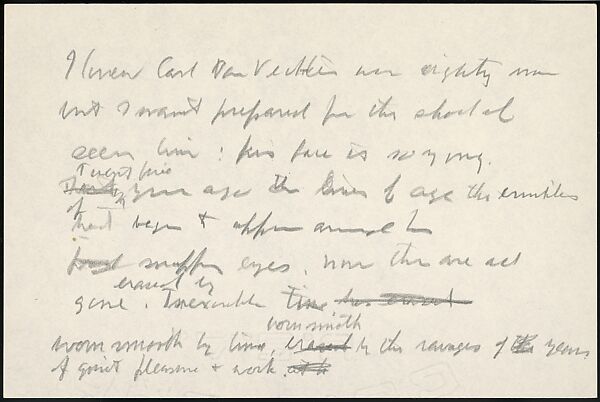 I knew Carl Van Vechten was eighty now
but I wasn't prepared for the shock of
seeing him: his face is so young.
Twenty five
years ago the lines of age the wrinkles
of
that began to appear around his
eyes, now they are all
erased by
gone. Inexorable Time has erased
worn smooth
worn smooth by time, erased by the ravages of the years
of quiet pleasure + work.